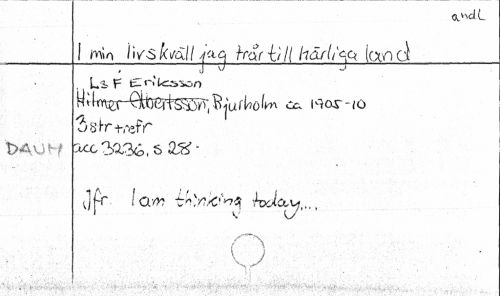 andl
I min livskväll jag trår till härliga land
L s f Eriksson
Hilmer Albertsson, Bjurholm ca 1905-10
3 str + refr
DAUM acc 3236, s 28.
Jfr. I am thinking today....